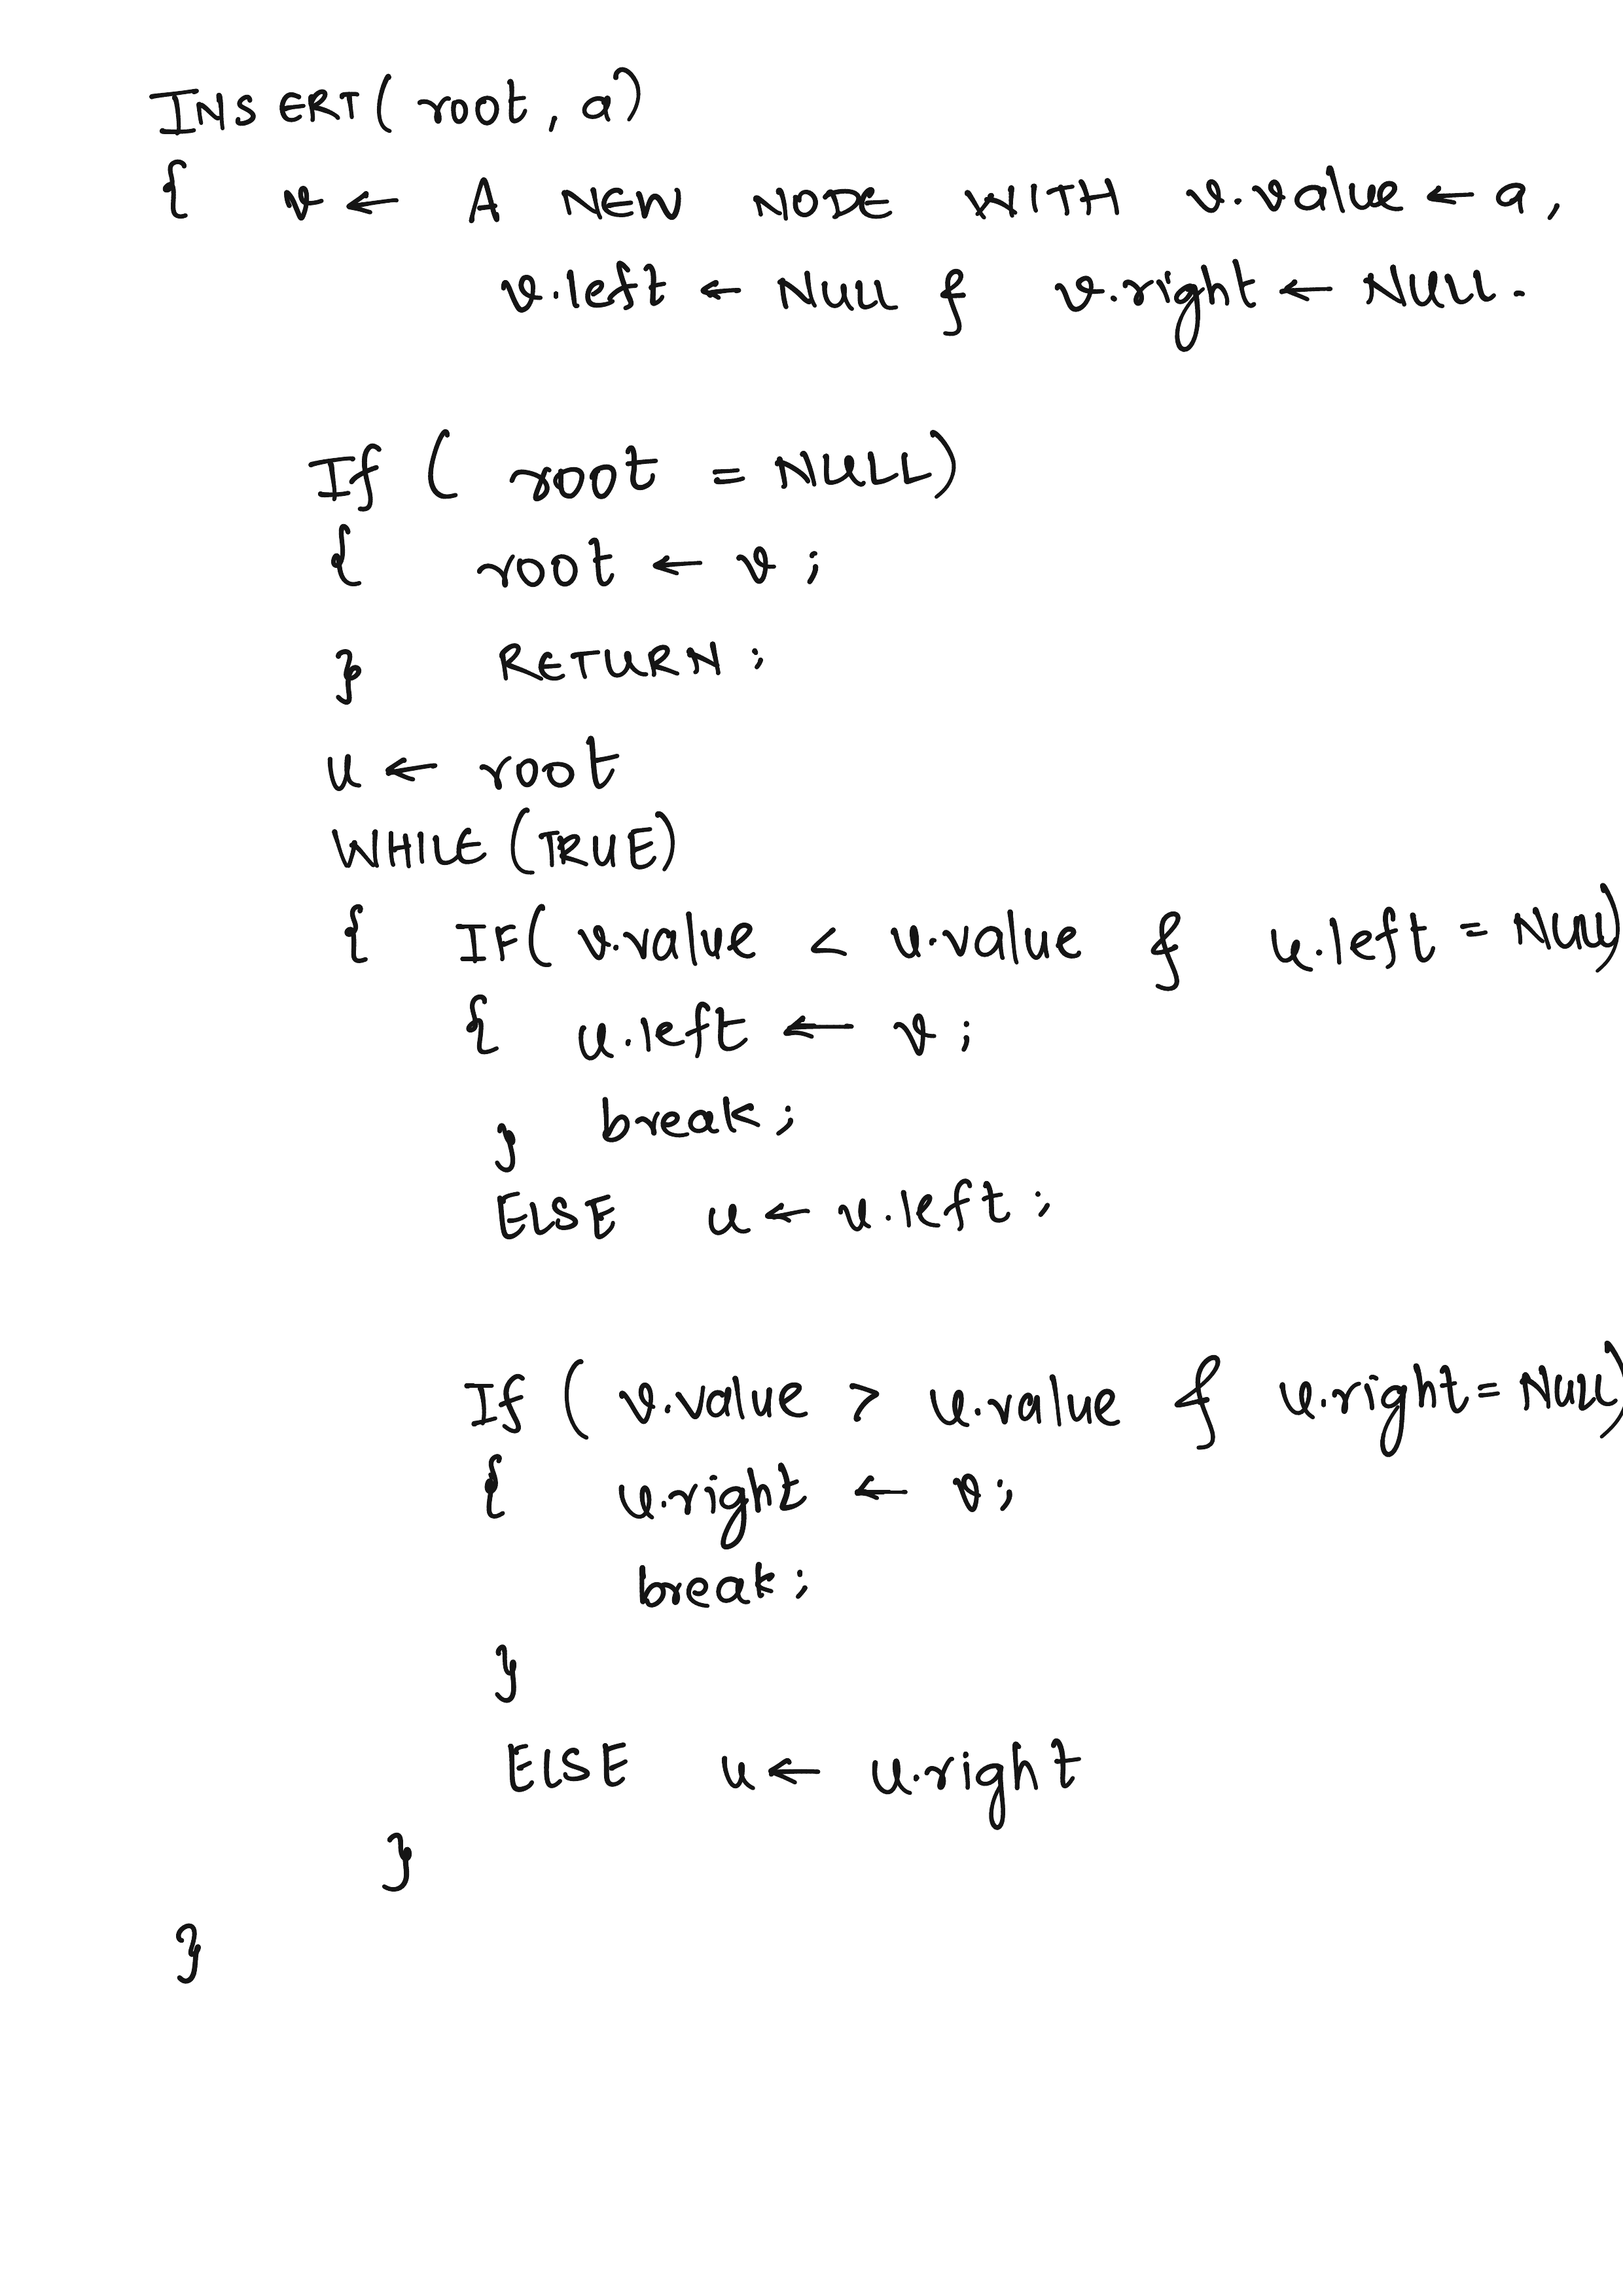 INSERT( root, a)
{ v ← A NEW NODE WITH v.value ← a,
v.left ← NULL & v.right ← NULL.
If ( root = NULL)
{ root ← v ;
} RETURN ;
u ← root
WHILE (TRUE)
{ IF( v.value < u.value & u.left = NULL)
{ u.left ← v ;
} break ;
ELSE u ← u.left ;
If ( v.value > u.value & u.right = NULL)
{ u.right ← v ;
break ;
}
ELSE u ← u.right
}
}